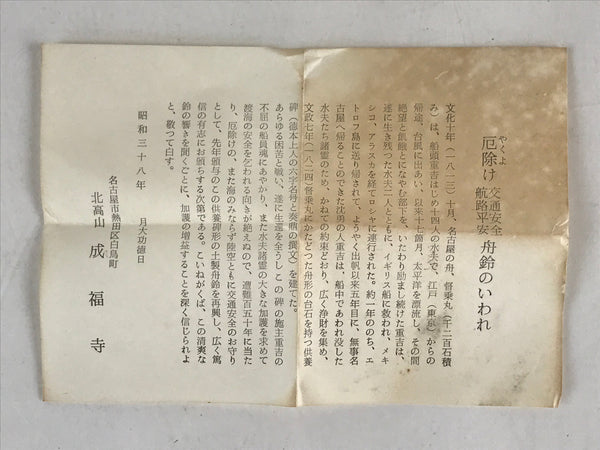 やくよ
厄除け 交通安全 航路平安 舟鈴のいわれ
文化十年(一八一三)十月、名古屋の舟、督乗丸(千二百石積
み)は、船頭重吉はじめ十四人の水夫で、江戸(東京)からの
帰途、台風に出あい、以来十七箇月、太平洋を漂流し、その間
絶望と飢餓とになやむ部下を、いたわり励まし続けた重吉は、
遂に生き残つた水夫二人とともに、イギリス船に救われ、メキ
シコ、アラスカを経てロシヤに連行された。約一年ののち、エ
トロフ島に送り帰されて、ようやく出帆以来五年目に、無事名
古屋へ帰ることのできた沈勇の人重吉は、船中であわれ没した
水夫たち諸霊のため、かねての約束どおり、広く浄財を集め、
文政七年(一八二四)督乗丸にかたどつた舟形の台石を持つ供養
碑(徳本上人の六字名号と奏鼎の撰文)を建てた。
あらゆる困苦と戦い、遂に生還を全うしこの碑の施主重吉の
不屈の船員魂にあやかり、また水夫諸霊の大きな加護を求めて
渡海の安全を乞われる向きが絶えぬので、遭難百五十年に当た
り、厄除けの、また海のみならず陸空ともに交通安全のお守り
として、先年頒与のこの供養碑形の土製舟鈴を再興し、広く篤
信の有志にお頒ちする次第である。こいねがくば、この清爽な
鈴の響きを聞くごとに、加護の増益することを深く信じられよ
と、敬つて白す。
昭和三十八年 月大功徳日
名古屋市熱田区白鳥町
北高山 成福寺